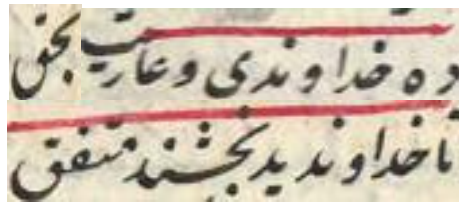 ده خداوندی و عاریت بحق
تا خداوندید بخشند متفق